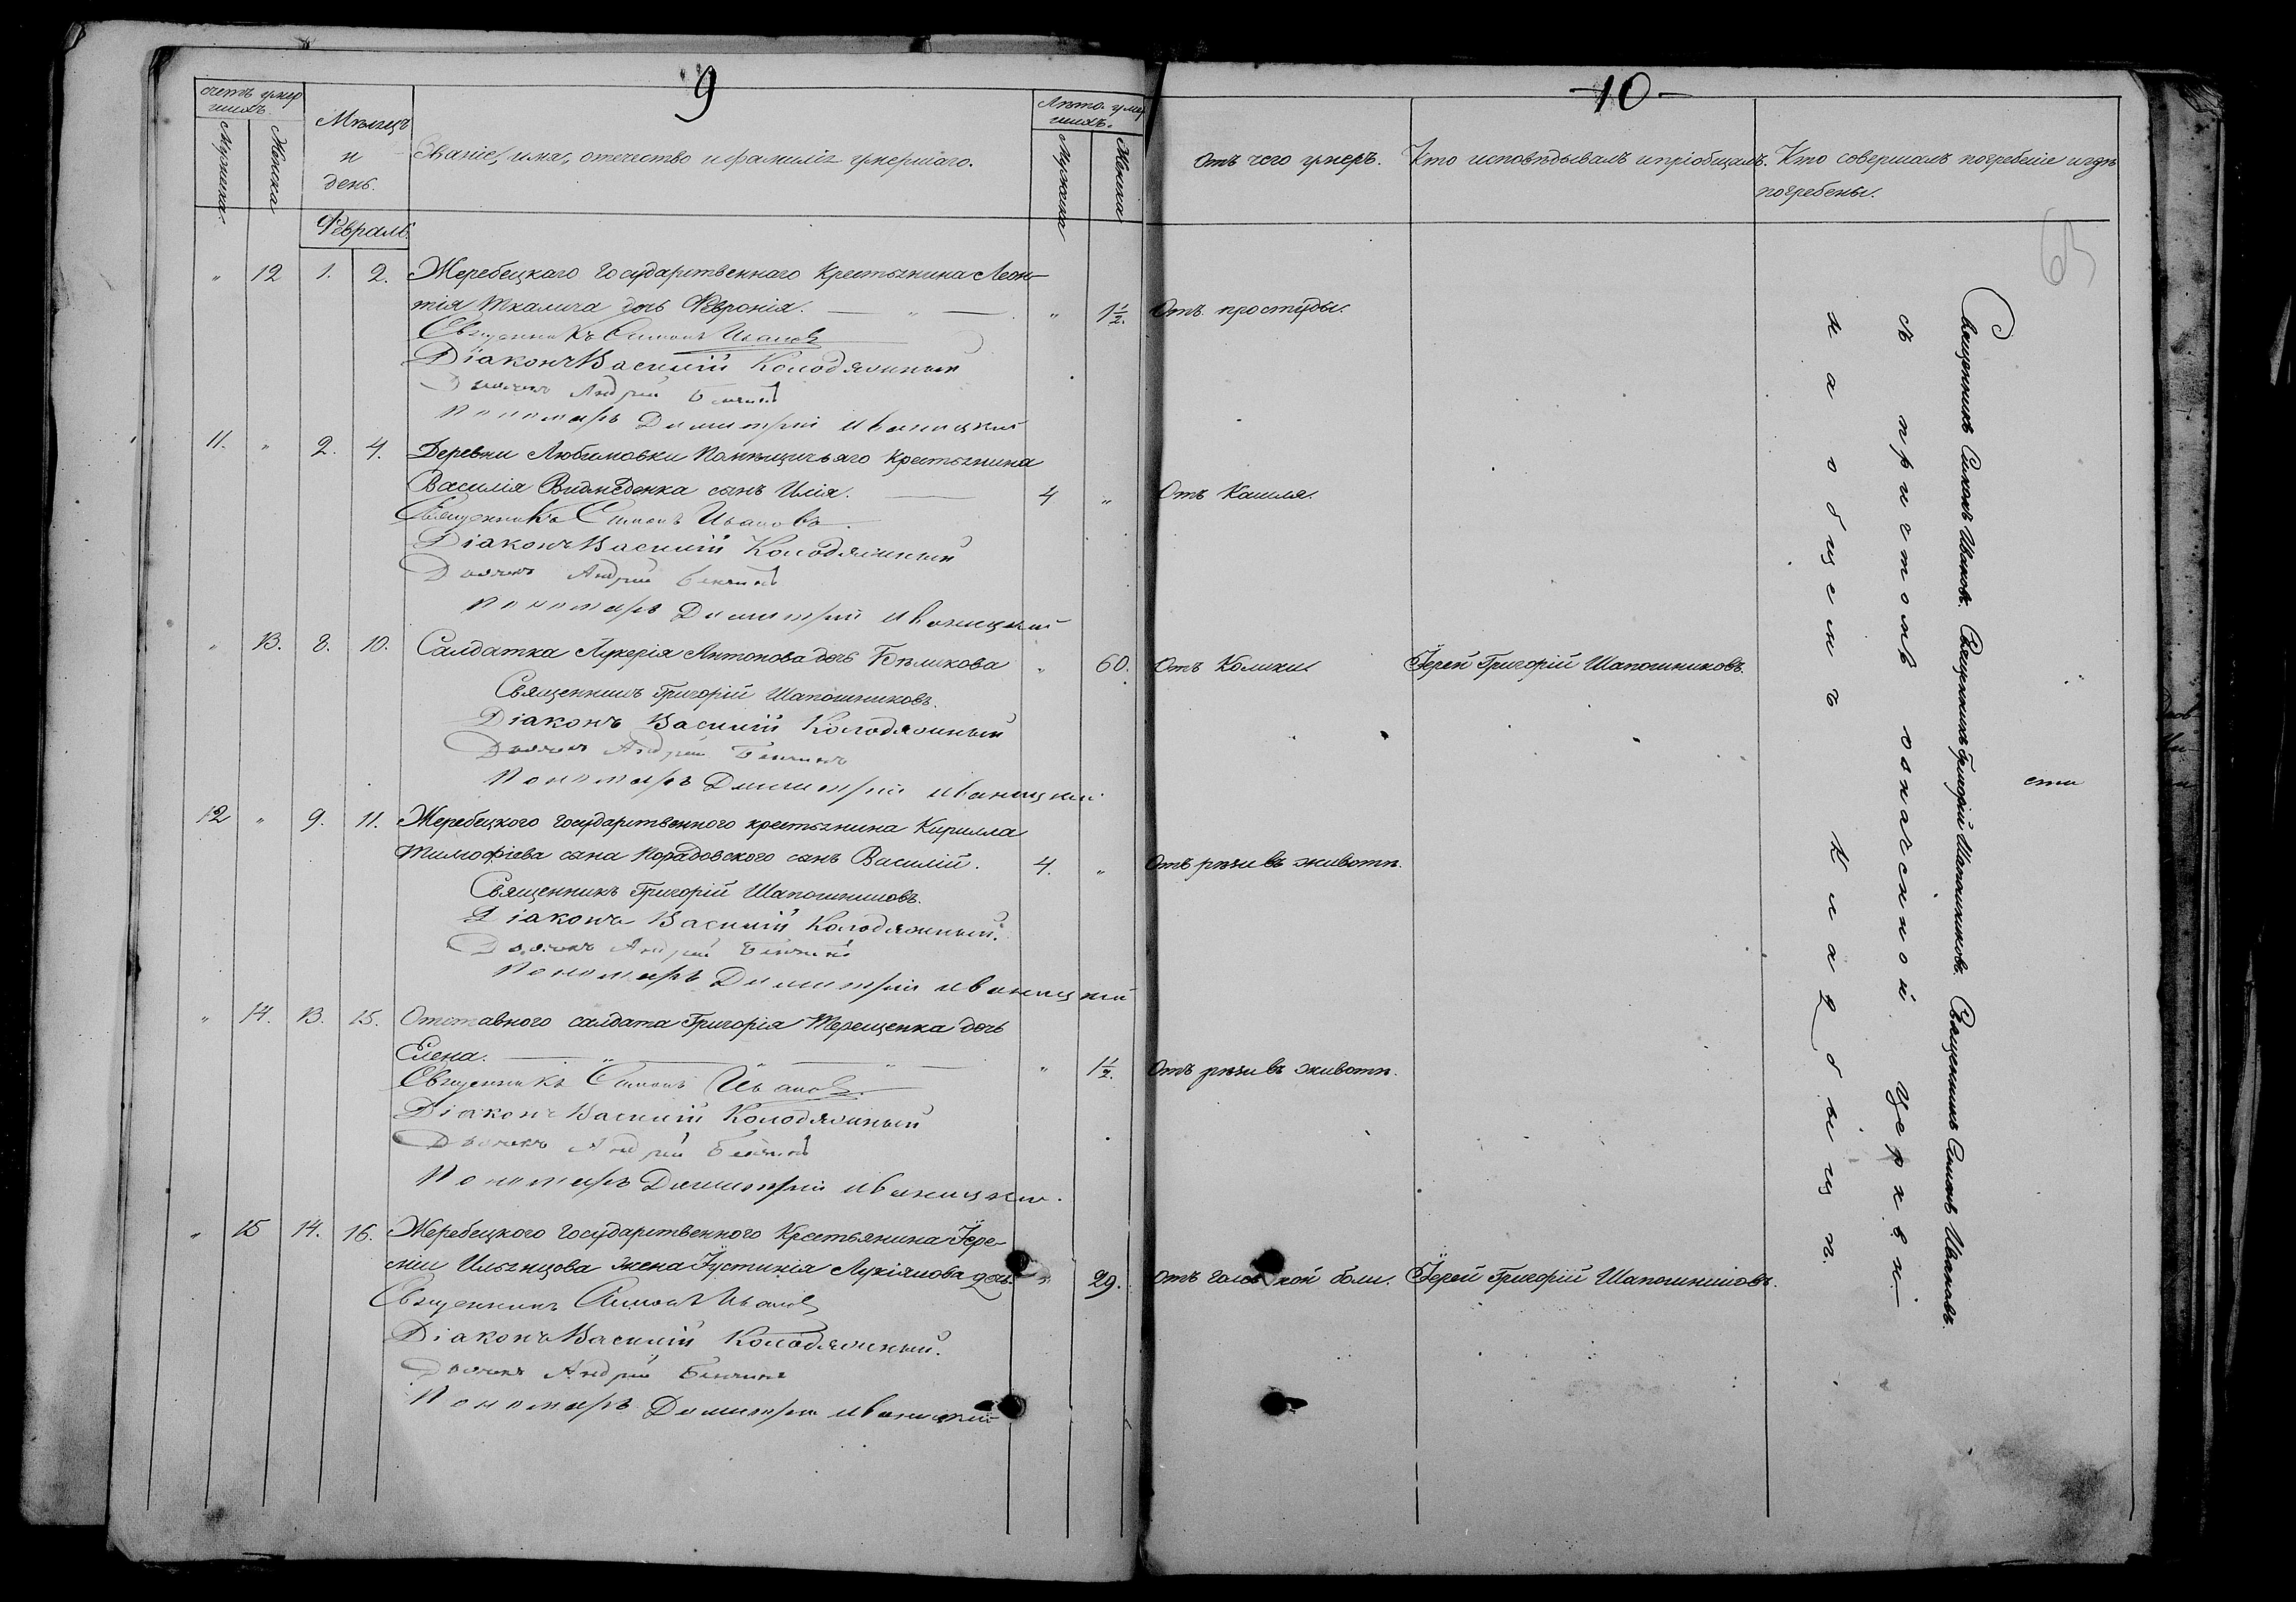 9
счетъ умер
шихъ.
Мужеска.
Женска
Мѣсяцъ
и
день.
Званіе, имя, отечество и фамилія умершаго.
Лѣто. умер
шихъ.
Мужеска
Женска
Февраль.
" 12 1. 2. Жеребецкаго государственнаго Крестьянина Леон-
тія Ткалича дочь Февронія. — " — " 1½.
Священникъ Симонъ Ивановъ
Діаконъ Василій Колодяжный
Дьячокъ Андрей
Пономарь Димитрій Иваницкій
11. " 2. 4. Деревни Любимовки Помѣщичьяго Крестьянина
Василія сынъ Илія. — 4 "
Священникъ Симонъ Ивановъ.
Діаконъ Василій Колодяжный
Дьячокъ Андрей
Пономарь Димитрій Иваницкій
" 13. 8. 10. Салдатка Лукерія Антонова дочь Бѣликова " 60.
Священникъ Григорій Шапошниковъ.
Діаконъ Василій Колодяжный
Дьячокъ Андрей
Пономарь Димитрій Иваницкій
12 " 9. 11. Жеребецкого государственного крестьянина Кирилла
Тимофіева сына Порадовского сынъ Василій. 4. "
Священникъ Григорій Шапошниковъ.
Діаконъ Василій Колодяжный.
Дьячокъ Андрей
Пономарь Димитрій Иваницкій
" 14. 13. 15. Отставного салдата Григорія Терещенка дочь
Елена. — " — " — " 1½.
Священникъ Симонъ Ивановъ.
Діаконъ Василій Колодяжный
Дьячокъ Андрей
Пономарь Димитрій Иваницкій.
" 15 14. 16. Жеребецкого государственного Крестьянина Іере-
міи Ильяшова жена Іустинія Лукіянова дочь. " 29.
Священникъ Симонъ Ивановъ
Діаконъ Василій Колодяжный.
Дьячокъ Андрей
Пономарь Димитрій Иваницкій
-10-
Отъ чего умеръ.
Кто исповѣдывалъ и пріобщалъ.
Кто совершалъ погребеніе и гдѣ
погребены.
63
Отъ простуды.
Отъ Кашля.
Отъ Колики.
Іерей Григорій Шапошниковъ.
Отъ рѣзи въ животѣ.
Отъ рѣзи въ животѣ.
Отъ голов кой боли.
Іерей Григорій Шапошниковъ.
Священникъ Симонъ Ивановъ. Священникъ Григорій Шапошниковъ. Священникъ Симонъ Ивановъ.
съ причтомъ означенной церкви
на общемъ кладбыщѣ.
сти